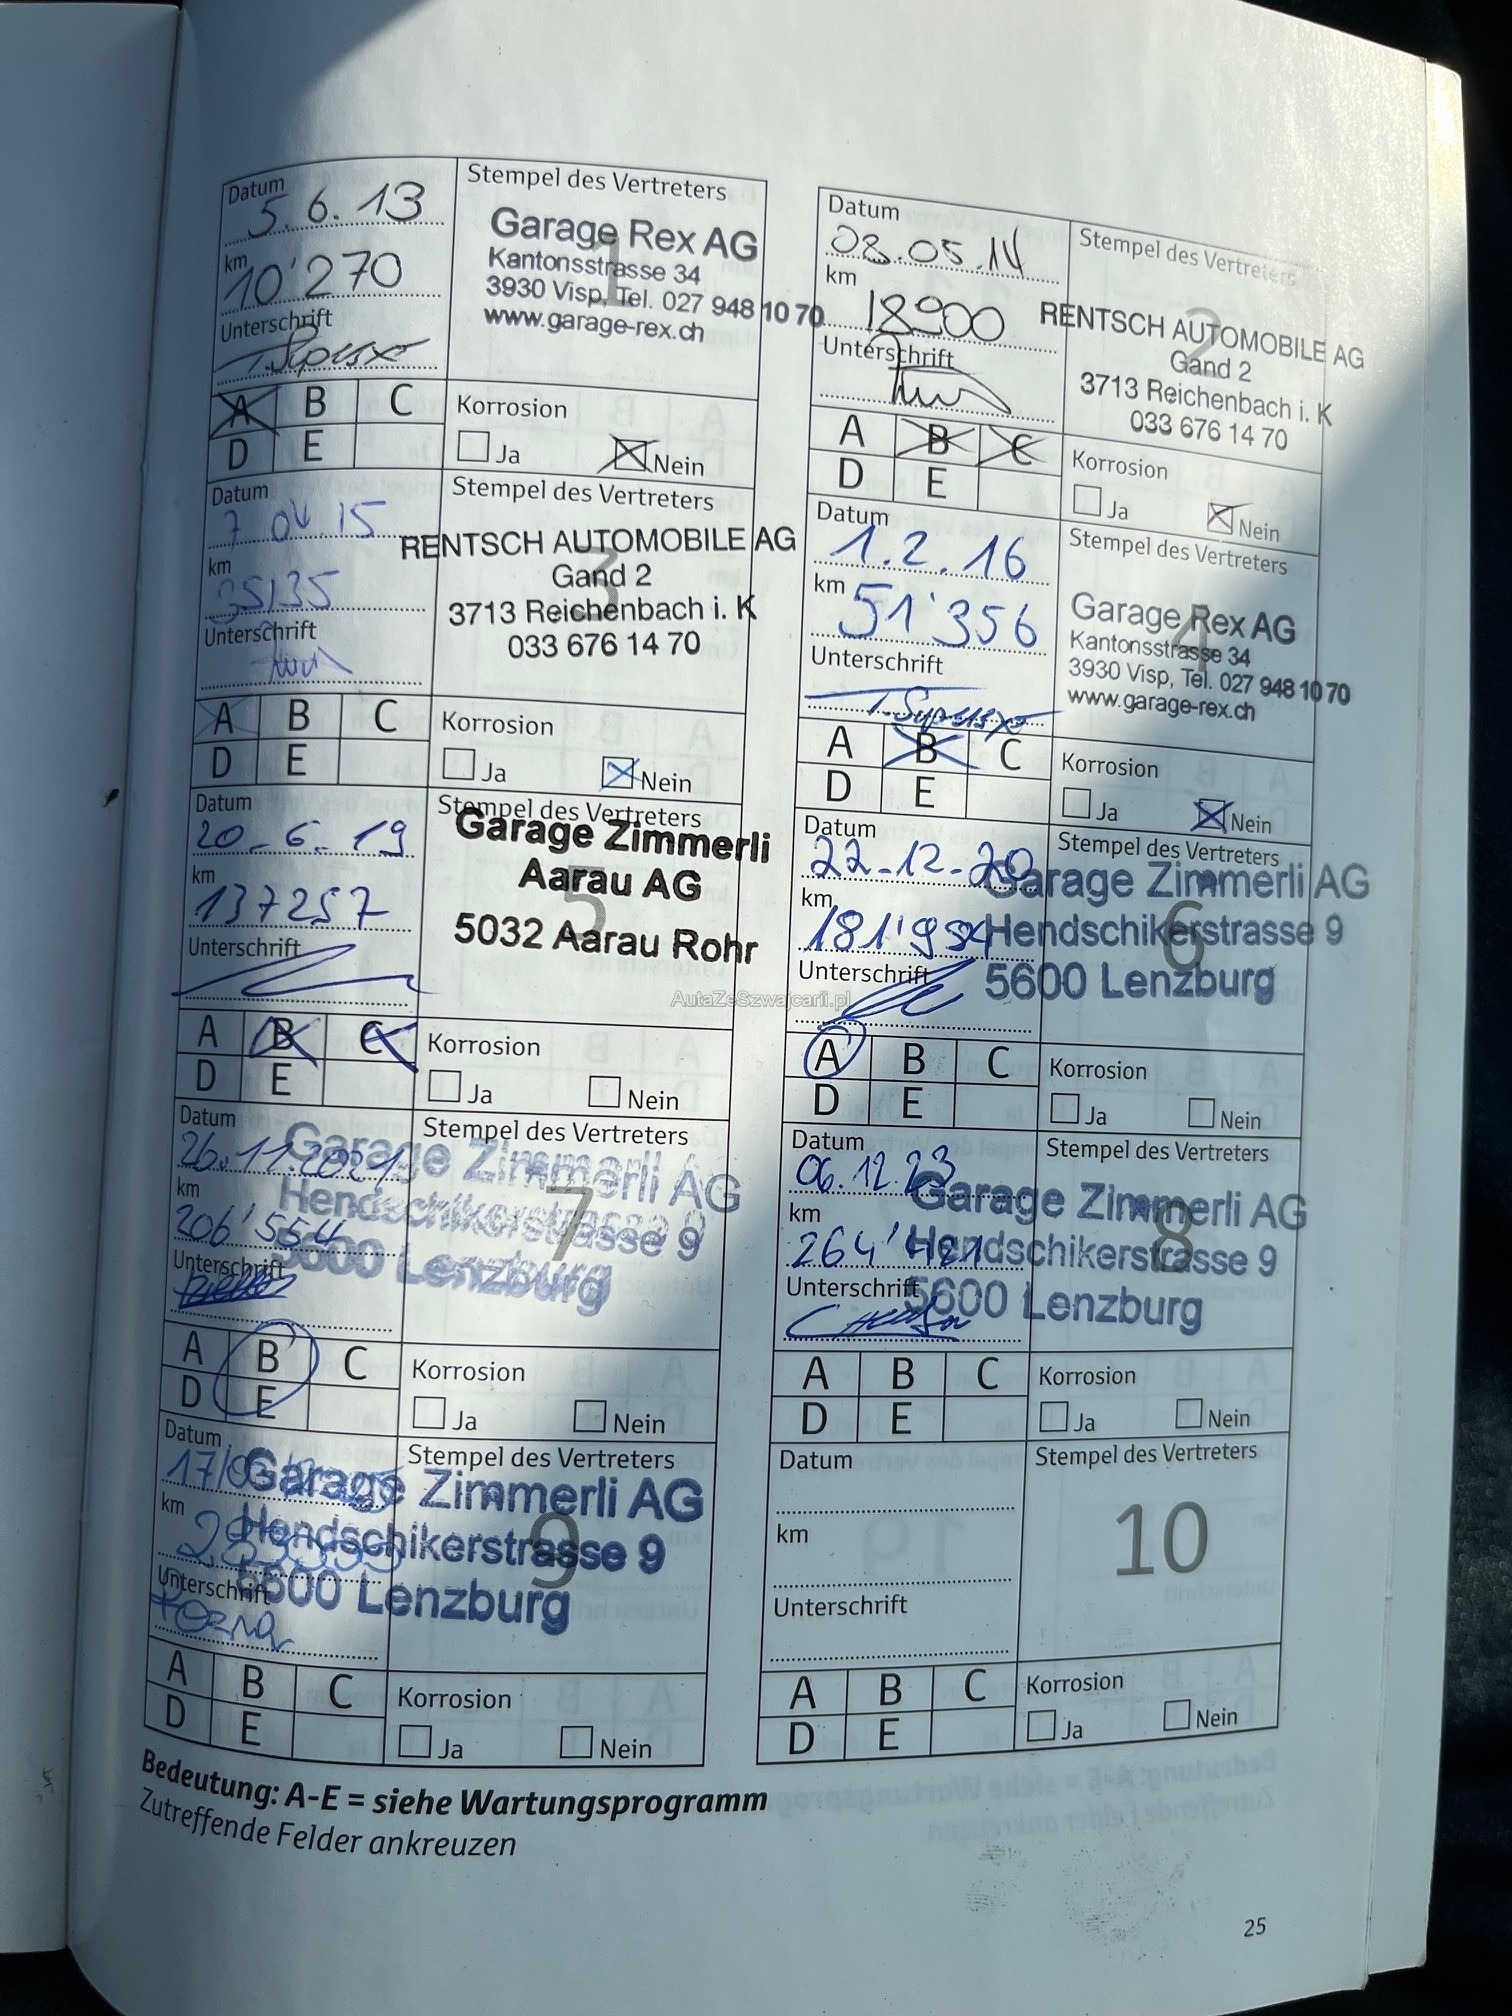 Datum
5.6.13
km
10'270
Unterschrift
Stempel des Vertreters
1
Garage Rex AG
Kantonsstrasse 34
3930 Visp, Tel. 027 948 10 70
www.garage-rex.ch
A B C
D E
Korrosion
Ja Nein
Datum
08.05.14
km
18900
Unterschrift
Stempel des Vertreters
2
RENTSCH AUTOMOBILE AG
Gand 2
3713 Reichenbach i. K
033 676 14 70
A B C
D E
Korrosion
Ja Nein
Datum
7 04 15
km
35135
Unterschrift
Stempel des Vertreters
3
RENTSCH AUTOMOBILE AG
Gand 2
3713 Reichenbach i. K
033 676 14 70
A B C
D E
Korrosion
Ja Nein
Datum
1.2.16
km
51'356
Unterschrift
Stempel des Vertreters
4
Garage Rex AG
Kantonsstrasse 34
3930 Visp, Tel. 027 948 10 70
www.garage-rex.ch
A B C
D E
Korrosion
Ja Nein
Datum
20-6-19
km
137257
Unterschrift
Stempel des Vertreters
5
Garage Zimmerli
Aarau AG
5032 Aarau Rohr
A B C
D E
Korrosion
Ja Nein
Datum
22-12-20
km
Unterschrift
Stempel des Vertreters
6
Garage Zimmerli AG
Hendschikerstrasse 9
5600 Lenzburg
A B C
D E
Korrosion
Ja Nein
AutaZeSzwajcarii.pl
Datum
26.11.2021
km
206'554
Unterschrift
Stempel des Vertreters
7
Garage Zimmerli AG
Hendschikerstrasse 9
5600 Lenzburg
A B C
D E
Korrosion
Ja Nein
Datum
06.12.23
km
Unterschrift
Stempel des Vertreters
8
Garage Zimmerli AG
Hendschikerstrasse 9
5600 Lenzburg
A B C
D E
Korrosion
Ja Nein
Datum
km
Unterschrift
Stempel des Vertreters
9
Garage Zimmerli AG
Hendschikerstrasse 9
5600 Lenzburg
A B C
D E
Korrosion
Ja Nein
Datum
km
Unterschrift
Stempel des Vertreters
10
A B C
D E
Korrosion
Ja Nein
Bedeutung: A-E = siehe Wartungsprogramm
Zutreffende Felder ankreuzen
25